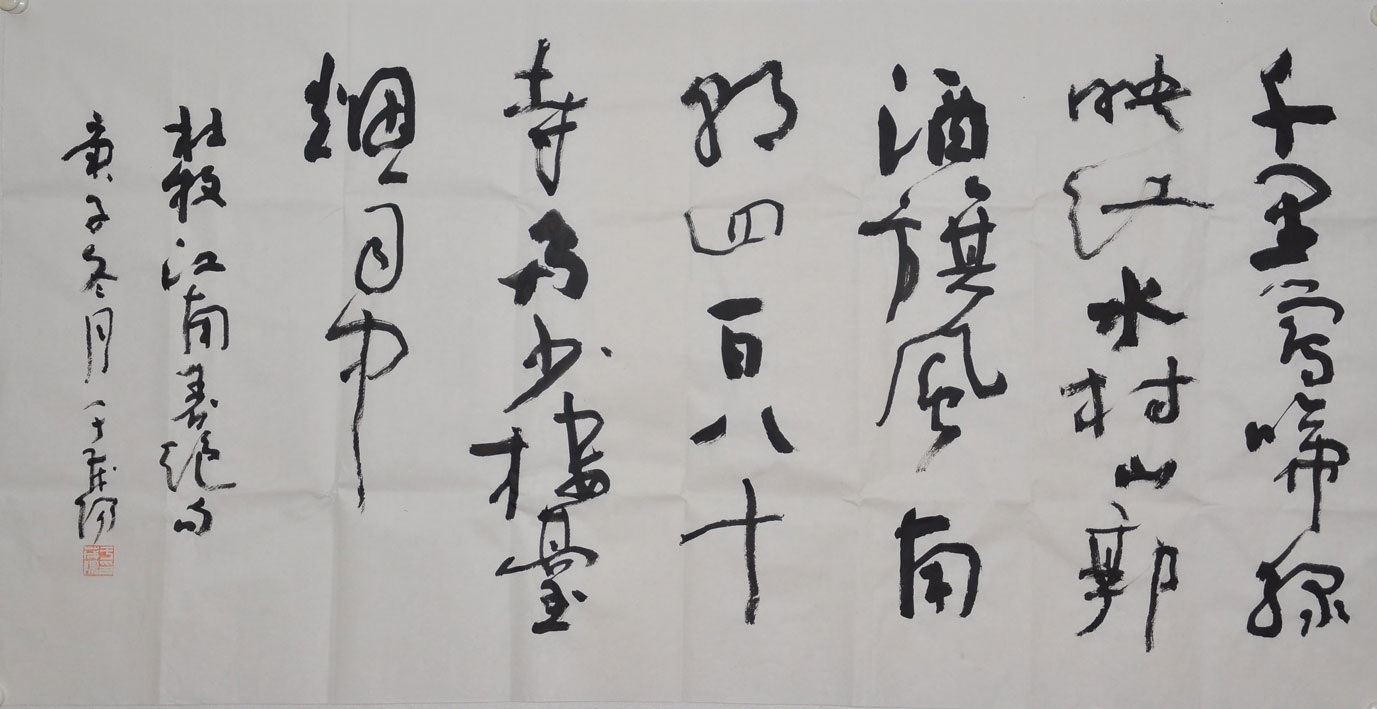 千里鶯啼綠
映紅水村山郭
酒旗風南
朝四百八十
寺多少樓臺
烟雨中
杜牧江南春絕句
庚子冬月